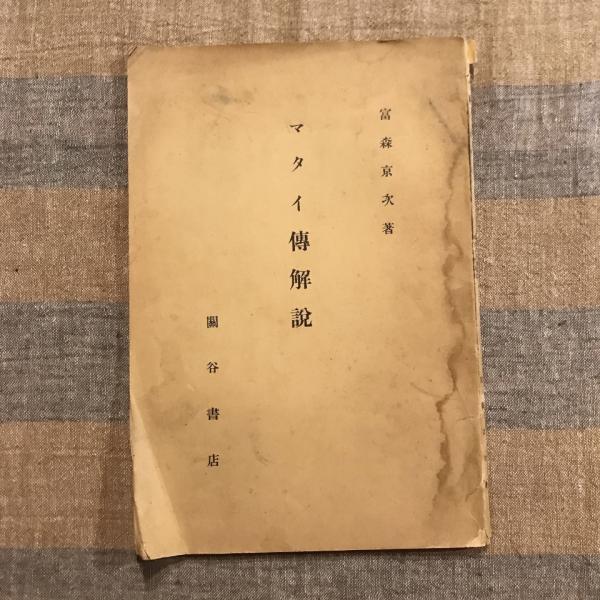 富森京次著
マタイ傳解說
關谷書店